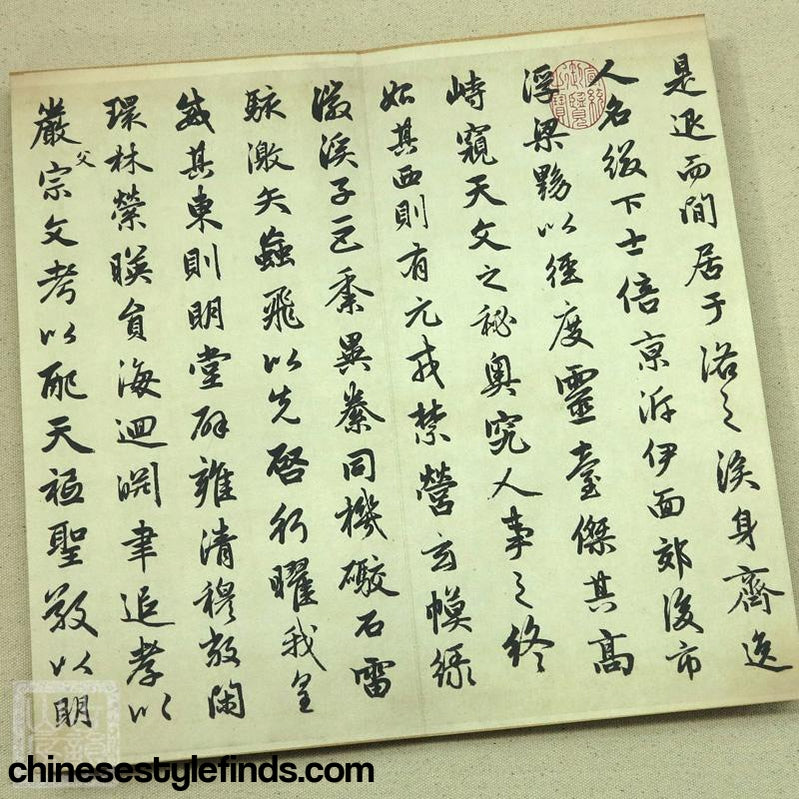 是退而閒居于洛之涘身齊逸
人名綴下士倍京泝伊面郊後市
浮梁黝以徑度靈臺傑其高
峙窺天文之祕奥究人事之終
始其西則有元戎禁營玄幙綠
徽溪子巨黍異絭同機礮石雷
駭激矢蝱飛以先啓行曜我皇
威其東則明堂辟雍清穆敞閑
環林縈暎員海迴淵聿追孝以
嚴父宗文考以配天祗聖敬以明
宣統御覽之寶
chinesestylefinds.com